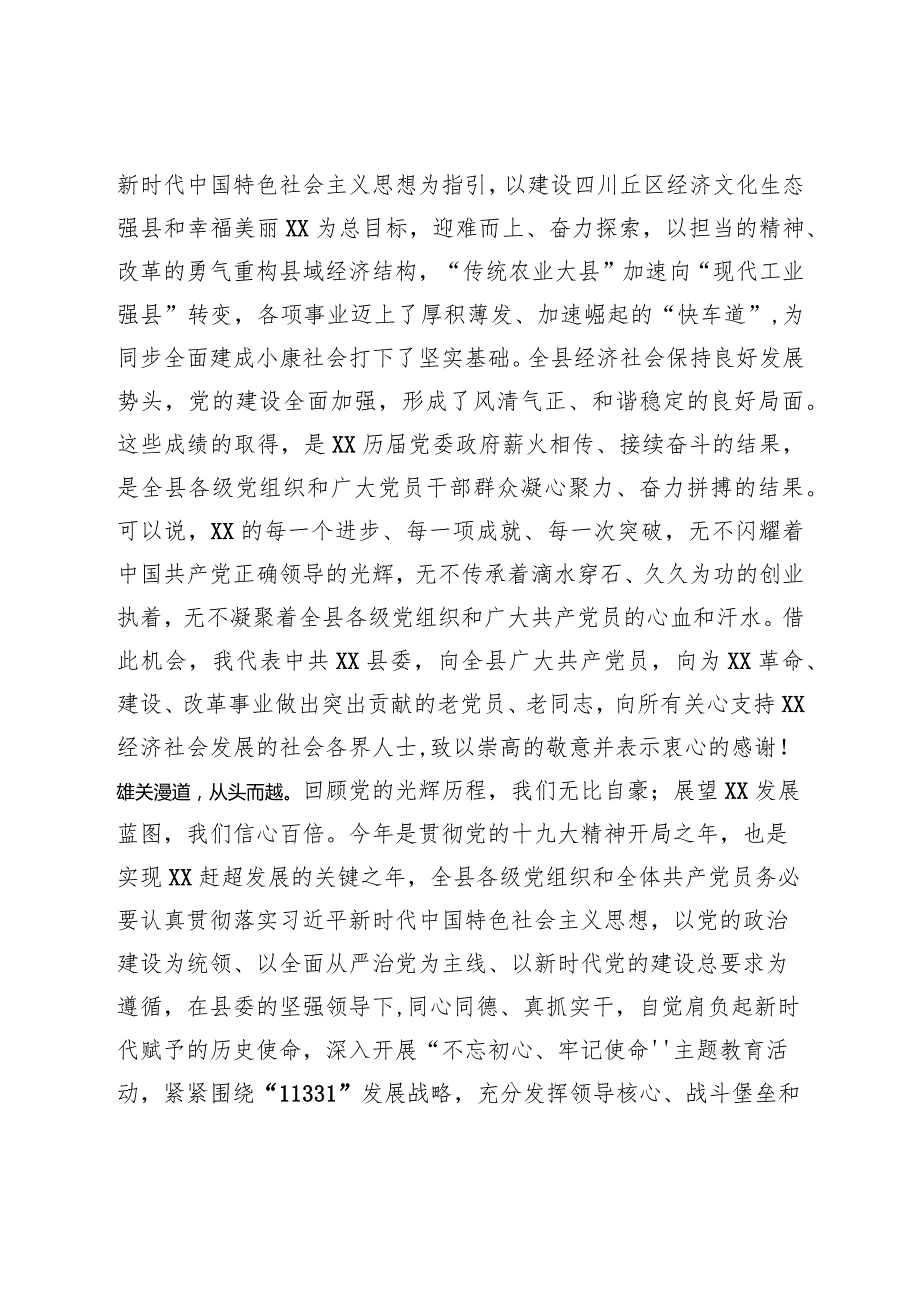 新时代中国特色社会主义思想为指引,以建设四川丘区经济文化生态
强县和幸福美丽 XX 为总目标，迎难而上、奋力探索，以担当的精神、
改革的勇气重构县域经济结构，“传统农业大县”加速向“现代工业
强县”转变，各项事业迈上了厚积薄发、加速崛起的“快车道”,为
同步全面建成小康社会打下了坚实基础。全县经济社会保持良好发展
势头，党的建设全面加强，形成了风清气正、和谐稳定的良好局面。
这些成绩的取得，是 XX 历届党委政府薪火相传、接续奋斗的结果，
是全县各级党组织和广大党员干部群众凝心聚力、奋力拼搏的结果。
可以说，XX 的每一个进步、每一项成就、每一次突破，无不闪耀着
中国共产党正确领导的光辉，无不传承着滴水穿石、久久为功的创业
执着，无不凝聚着全县各级党组织和广大共产党员的心血和汗水。借
此机会，我代表中共 XX 县委，向全县广大共产党员，向为 XX 革命、
建设、改革事业做出突出贡献的老党员、老同志，向所有关心支持 XX
经济社会发展的社会各界人士,致以崇高的敬意并表示衷心的感谢！
雄关漫道，从头而越。回顾党的光辉历程，我们无比自豪；展望 XX 发展
蓝图，我们信心百倍。今年是贯彻党的十九大精神开局之年，也是
实现 XX 赶超发展的关键之年，全县各级党组织和全体共产党员务必
要认真贯彻落实习近平新时代中国特色社会主义思想，以党的政治
建设为统领、以全面从严治党为主线、以新时代党的建设总要求为
遵循，在县委的坚强领导下,同心同德、真抓实干，自觉肩负起新时
代赋予的历史使命，深入开展“不忘初心、牢记使命''主题教育活
动，紧紧围绕“11331”发展战略，充分发挥领导核心、战斗堡垒和